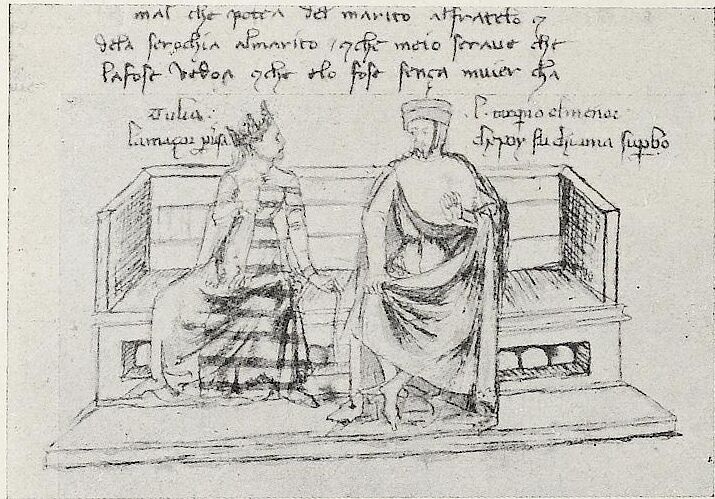 mal che potea del marito alfratelo ⁊
dela serochia almarito / ⁊ che meio seraue che
lafose vedoa ⁊ che elo fose sença muier cha
Tulia
lamaçor
elmenor
chepoy fu chiama supbo